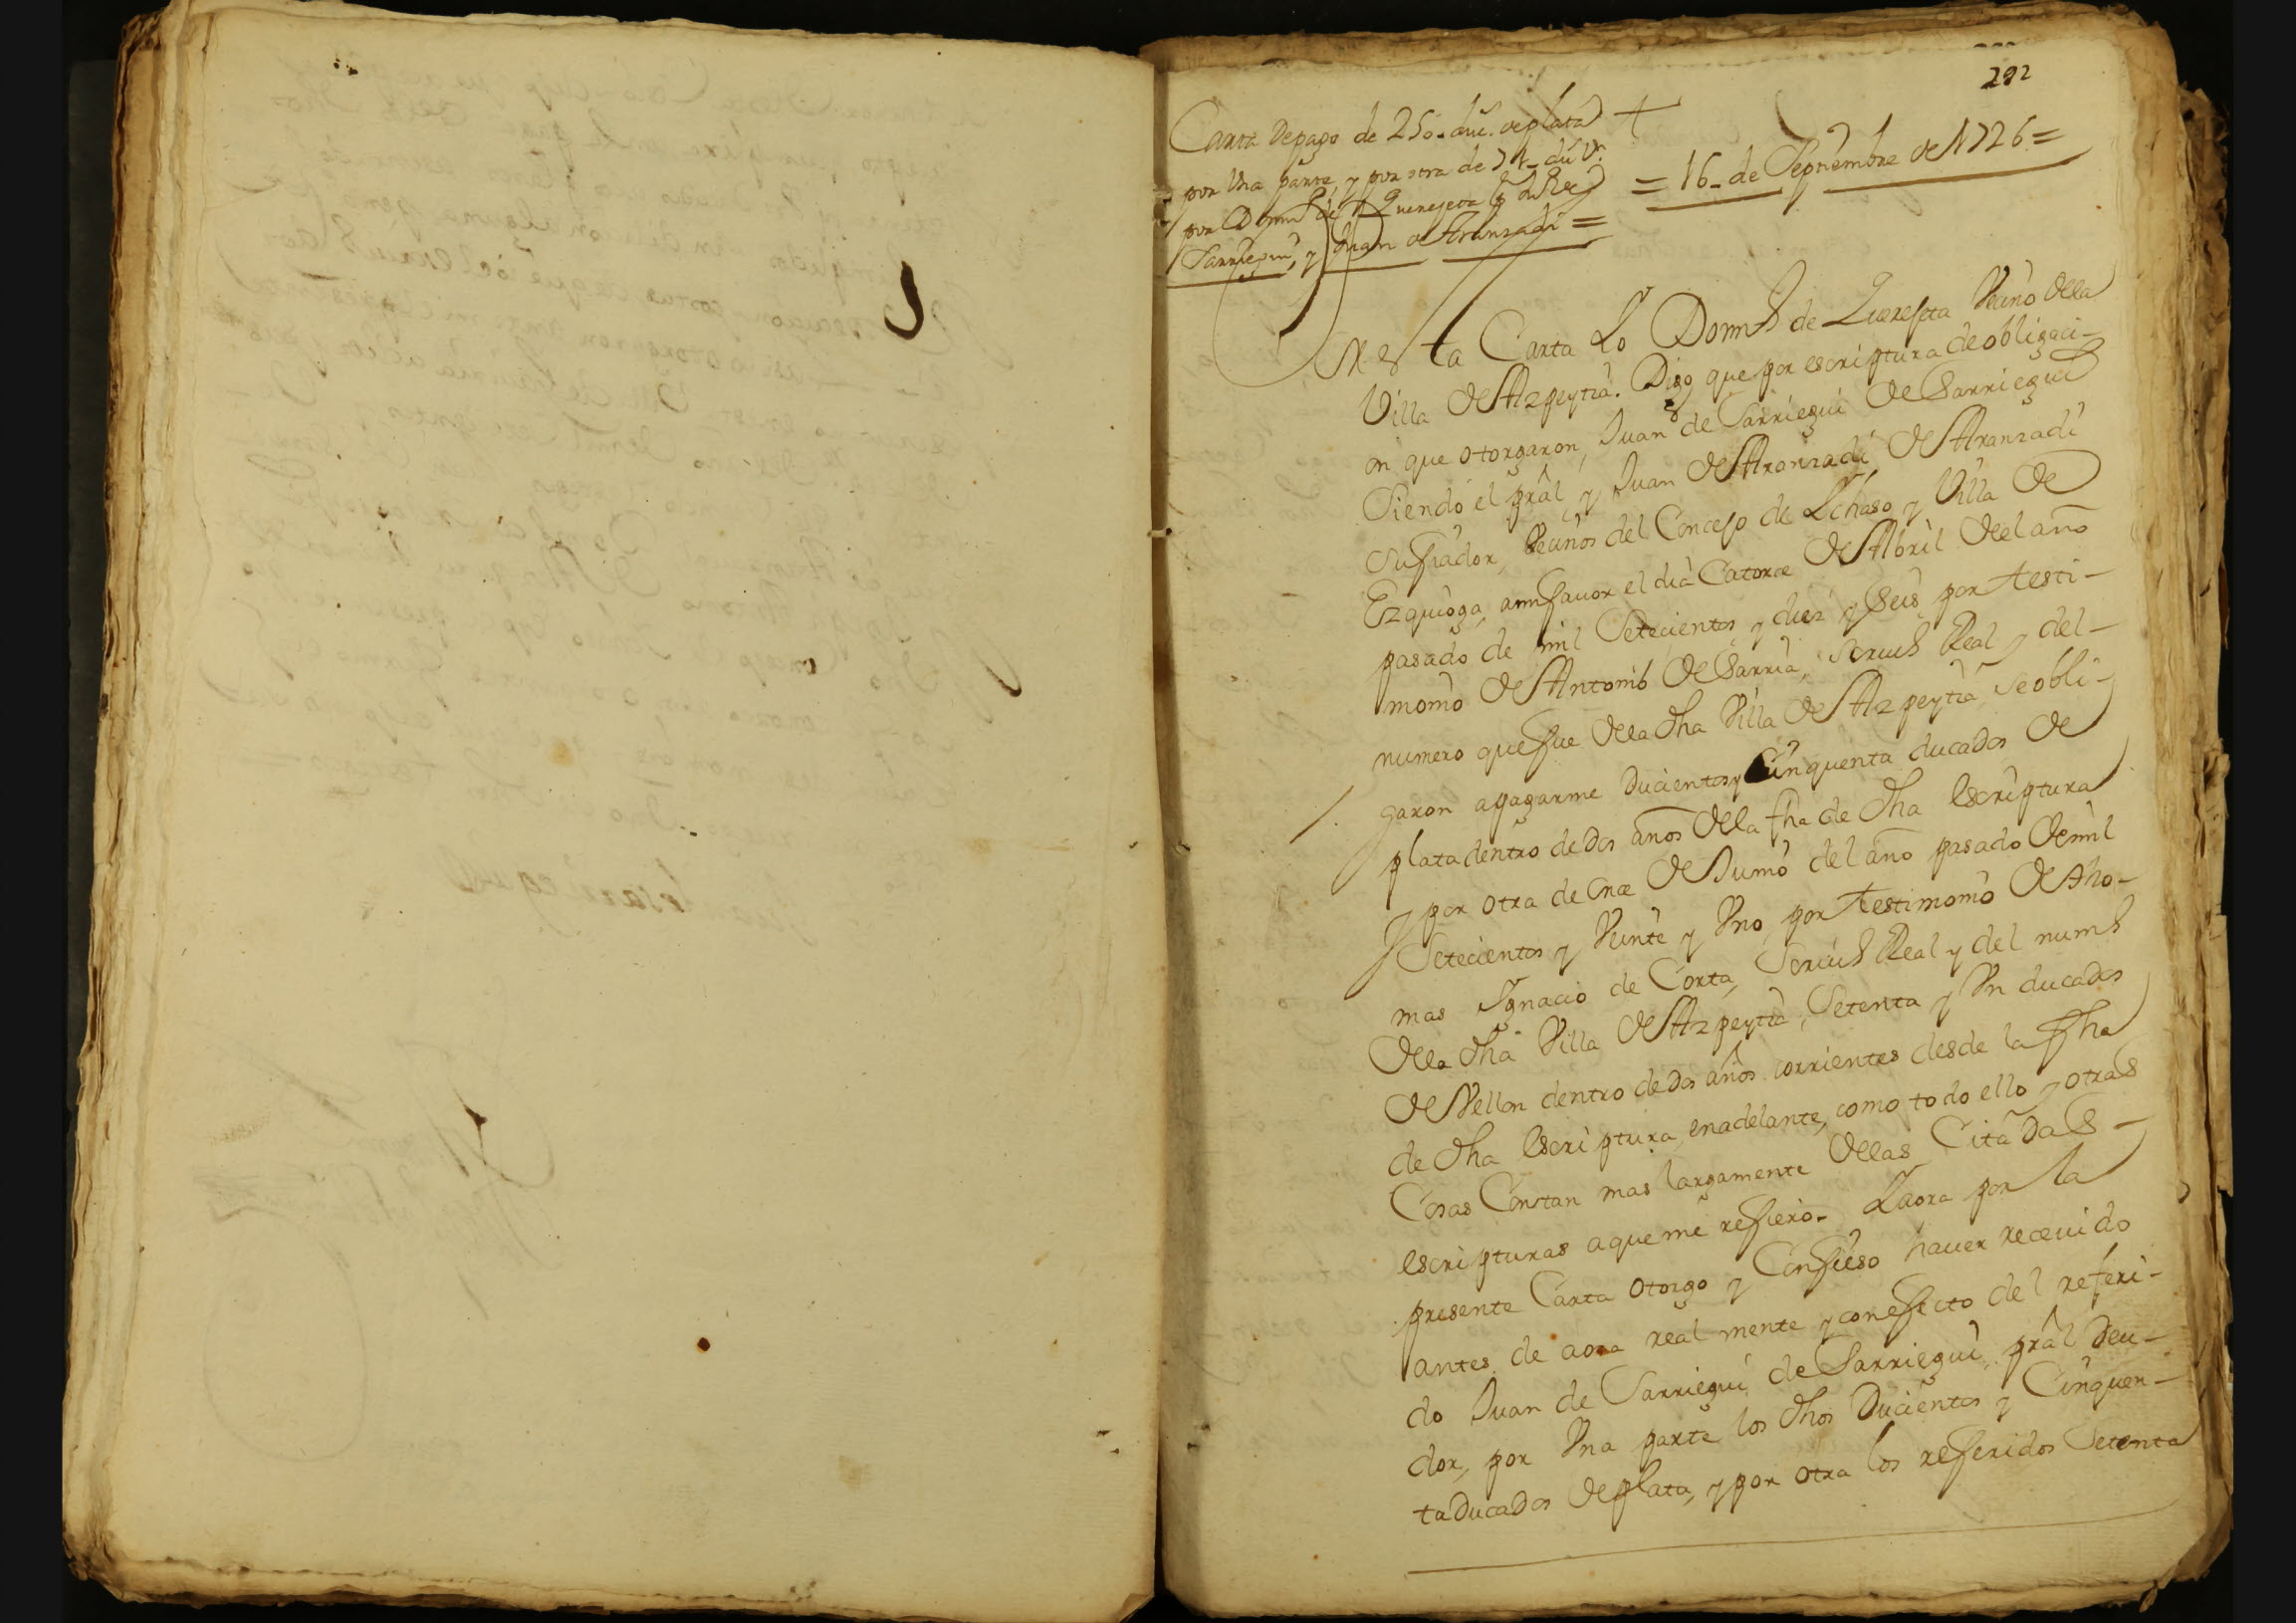 292
Carta de pago de 250_ duc. de plata +
por Una parte, y por otra de 71_ du. Vn.
por Domin.º de Querejeta
Sarriegui, y Juan de Aranzadi =
= 16_ de Septiembre de 1726 =
esta Carta Yo Domin.º de Querejeta Vecino de la
Villa de Azpeytia. Digo que por escriptura de obligaci-
on que otorgaron, Juan de Sarriegui de Sarriegui
Siendo el pral, y Juan de Aranzadi de Aranzadi
su fiador, Vecinos del Concejo de Ychaso y Villa de
Ezquioga, amifavor el dia Catorce de Abril del año
pasado de mil Setecientos y diez y Seis por testi-
monio de Antonio de Sarria, Scriu.º Real y del
numero que fue de la dha Villa de Azpeytia, se obli-
garon apagarme Ducientos y Cinquenta ducados de
plata dentro de dos años de la fha de dha Escriptura
Y por otra de Once de Junio del año pasado de mil
Setecientos y Veinte y Vno, por testimonio de Tho-
mas Ygnacio de Corta, Scriu.º Real y del num.º
de la dha Villa de Azpeytia, Setenta y Vn ducados
de Vellon dentro de dos años corrientes desde la fha
de dha Escriptura enadelante, como todo ello y otras
Cosas Constan mas largamente de las Citadas
escripturas aqueme refiero. Yaora por la
presente Carta otorgo y Confieso hauer receuido
antes de aora real mente y con efecto del referi-
do Juan de Sarriegui de Sarriegui, pral deu-
dor, por Vna parte los dhos Ducientos y Cinquen-
ta Ducados de plata, y por otra los referidos Setenta